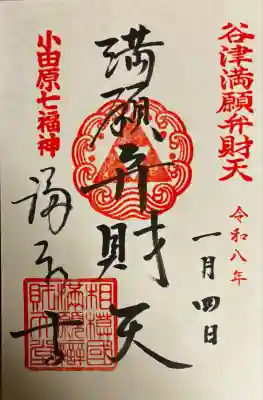 谷津満願弁財天
令和八年
一月四日
満願弁財天
小田原七福神